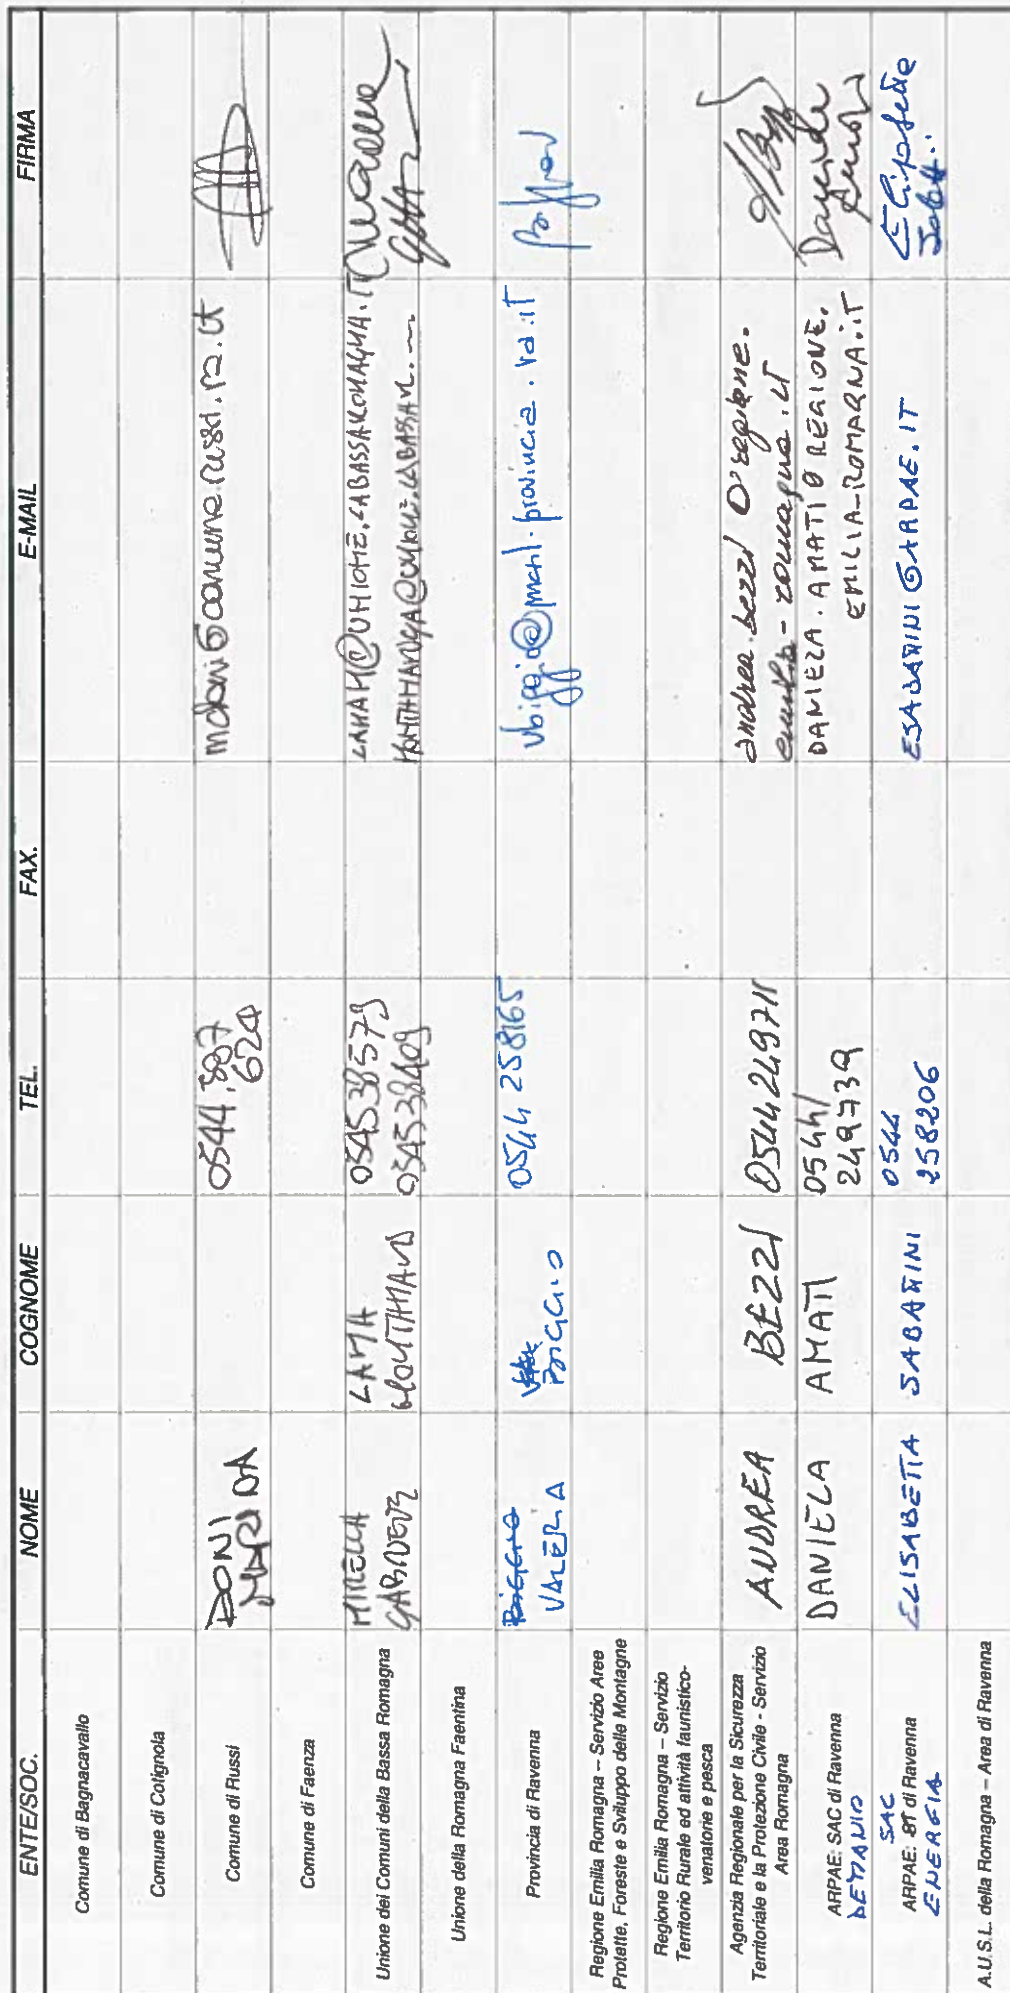 ENTE/SOC. NOME COGNOME TEL. FAX. E-MAIL FIRMA
Comune di Bagnacavallo
Comune di Cotignola
Comune di Russi DONI 0544.587
624
Comune di Faenza
Unione dei Comuni della Bassa Romagna MIRELLA LAMA 0545 38579
0545 38409
Unione della Romagna Faentina
Provincia di Ravenna VALERIA BIGGIO 0544 258165
Regione Emilia Romagna – Servizio Aree
Protette, Foreste e Sviluppo delle Montagne
Regione Emilia Romagna – Servizio
Territorio Rurale ed attività faunistico-
venatorie e pesca
Agenzia Regionale per la Sicurezza
Territoriale e la Protezione Civile - Servizio
Area Romagna
ANDREA BEZZI 0544249711 andrea.bezzi@regione.
emilia-romagna.it
ARPAE: SAC di Ravenna
DEMANIO
DANIELA AMATI 0544/
249739
DANIELA.AMATI@REGIONE.
EMILIA-ROMAGNA.IT
Daniela
Amati
SAC
ARPAE: di Ravenna
ENERGIA
ELISABETTA SABATTINI 0544
258206
A.U.S.L. della Romagna – Area di Ravenna